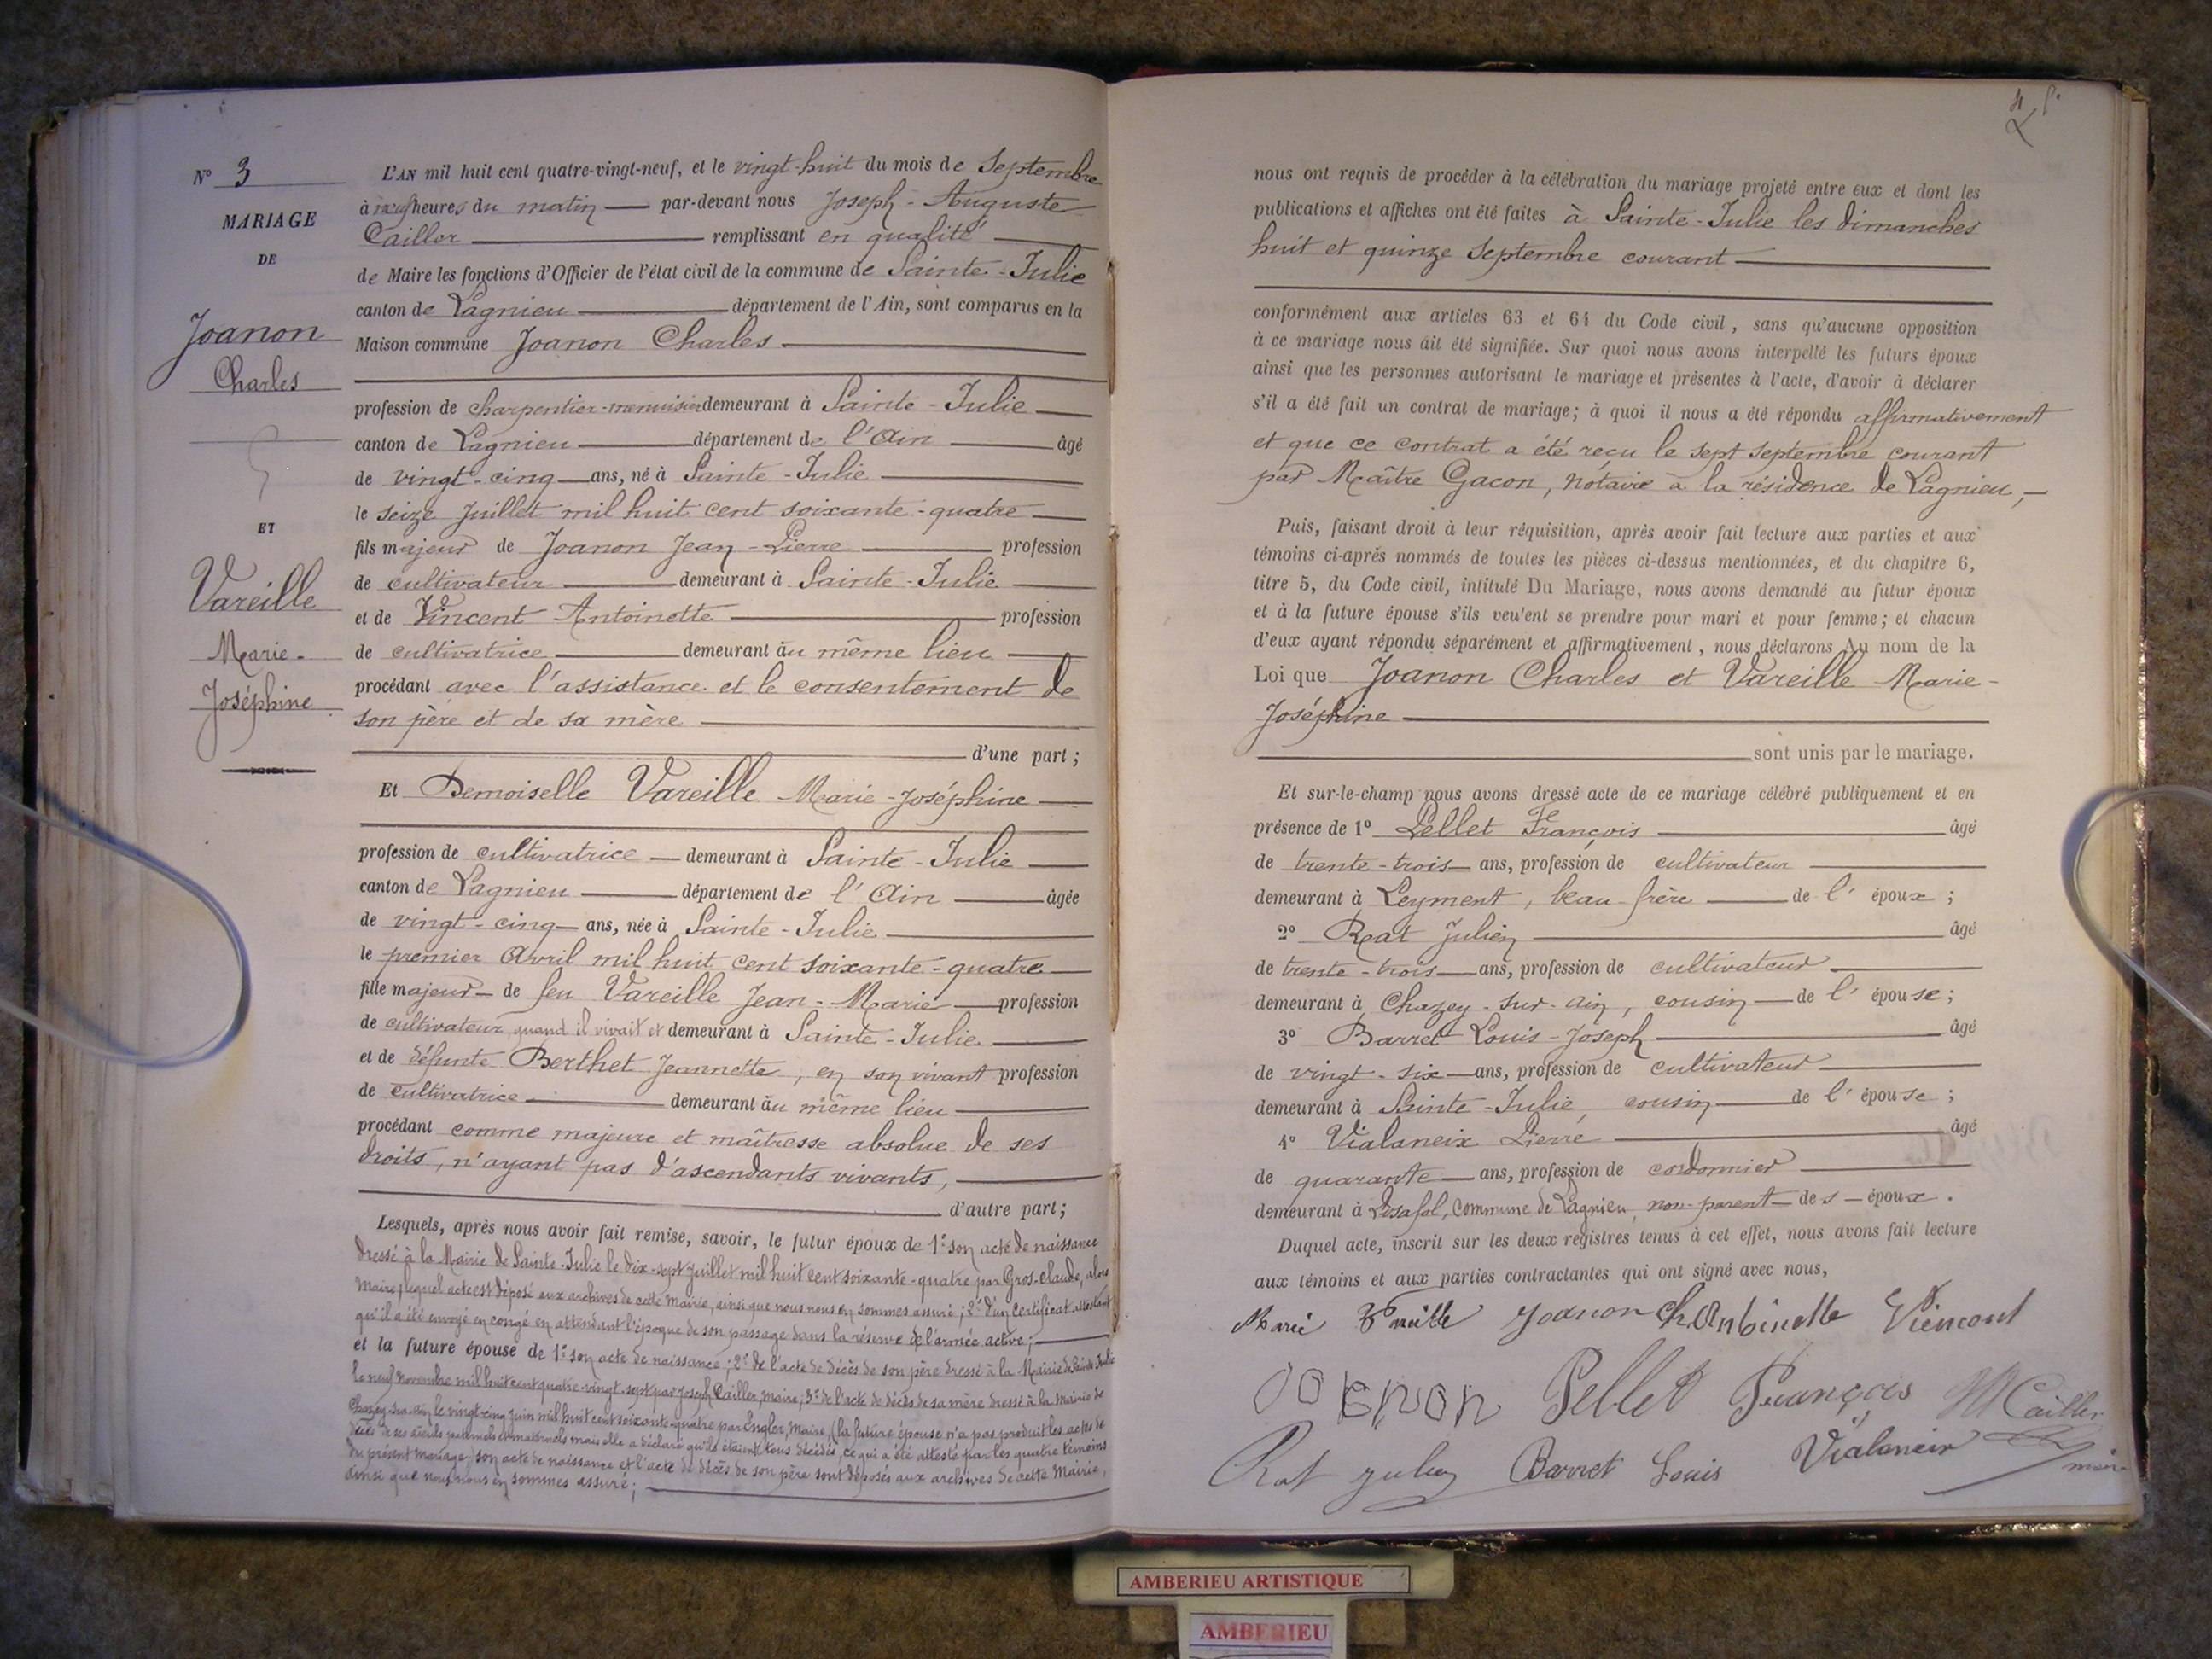 N° 3
MARIAGE
DE
Joanon
Charles
ET
Vareille
Marie-
Joséphine
L'AN mil huit cent quatre-vingt-neuf, et le vingt-huit du mois de Septembre
à neuf heures du matin par-devant nous Joseph-Auguste
Cailler remplissant en qualité
de Maire les fonctions d'Officier de l'état civil de la commune de Sainte-Julie
canton de Lagnieu département de l'Ain, sont comparus en la
Maison commune Joanon Charles
profession de charpentier-menuisier demeurant à Sainte-Julie
canton de Lagnieu département de l'Ain âgé
de vingt-cinq ans, né à Sainte-Julie
le seize Juillet mil huit cent soixante-quatre
fils majeur de Joanon Jean-Pierre profession
de cultivateur demeurant à Sainte-Julie
et de Vincent Antoinette profession
de cultivatrice demeurant au même lieu
procédant avec l'assistance et le consentement de
son père et de sa mère
d'une part ;
Et Demoiselle Vareille Marie-Joséphine
profession de cultivatrice demeurant à Sainte-Julie
canton de Lagnieu département de l'Ain âgée
de vingt-cinq ans, née à Sainte-Julie
le premier Avril mil huit cent soixante-quatre
fille majeur de feu Vareille Jean-Marie profession
de cultivateur, quand il vivait et demeurant à Sainte-Julie
et de défunte Berthet Jeannette, en son vivant profession
de cultivatrice demeurant au même lieu
procédant comme majeure et maîtresse absolue de ses
droits, n'ayant pas d'ascendants vivants,
d'autre part ;
Lesquels, après nous avoir fait remise, savoir, le futur époux de 1° son acte de naissance
dressé à la Mairie de Sainte-Julie le dix-sept Juillet mil huit cent soixante-quatre par Gros-Claude, alors
Maire, lequel acte est déposé aux archives de cette Mairie, ainsi que nous nous en sommes assuré ; 2° d'un certificat attestant
qu'il a été envoyé en congé en attendant l'époque de son passage dans la réserve de l'armée active ;
et la future épouse de 1° son acte de naissance ; 2° de l'acte de décès de son père dressé à la Mairie de Sainte-Julie
le neuf Novembre mil huit cent quatre-vingt-sept par Joseph Cailler, Maire ; 3° de l'acte de décès de sa mère dressé à la Mairie de
Chazey-sur-Ain le vingt-cinq Juin mil huit cent soixante-quatre par Engler, Maire, (la future épouse n'a pas produit les actes de
décès de ses aïeuls paternels et maternels mais elle a déclaré qu'ils étaient tous décédés, ce qui a été attesté par les quatre témoins
du présent mariage) son acte de naissance et l'acte de décès de son père sont déposés aux archives de cette Mairie,
ainsi que nous nous en sommes assuré ;
nous ont requis de procéder à la célébration du mariage projeté entre eux et dont les
publications et affiches ont été faites à Sainte-Julie les dimanches
huit et quinze Septembre courant
conformément aux articles 63 et 64 du Code civil, sans qu'aucune opposition
à ce mariage nous ait été signifiée. Sur quoi nous avons interpellé les futurs époux
ainsi que les personnes autorisant le mariage et présentes à l'acte, d'avoir à déclarer
s'il a été fait un contrat de mariage ; à quoi il nous a été répondu affirmativement
et que ce contrat a été reçu le sept septembre courant
par Maître Gacon, notaire à la résidence de Lagnieu,
Puis, faisant droit à leur réquisition, après avoir fait lecture aux parties et aux
témoins ci-après nommés de toutes les pièces ci-dessus mentionnées, et du chapitre 6,
titre 5, du Code civil, intitulé Du Mariage, nous avons demandé au futur époux
et à la future épouse s'ils veulent se prendre pour mari et pour femme ; et chacun
d'eux ayant répondu séparément et affirmativement, nous déclarons Au nom de la
Loi que Joanon Charles et Vareille Marie-
Joséphine
sont unis par le mariage.
Et sur-le-champ nous avons dressé acte de ce mariage célébré publiquement et en
présence de 1° Pellet François âgé
de trente-trois ans, profession de cultivateur
demeurant à Leyment, beau-frère de l'époux ;
2° Rat Julien âgé
de trente-trois ans, profession de cultivateur
demeurant à Chazey-sur-Ain, cousin de l'épouse ;
3° Barret Louis-Joseph âgé
de vingt-six ans, profession de cultivateur
demeurant à Sainte-Julie, cousin de l'épouse ;
4° Vialaneix Pierre âgé
de quarante ans, profession de cordonnier
demeurant à Posafol, commune de Lagnieu, non-parent des époux.
Duquel acte, inscrit sur les deux registres tenus à cet effet, nous avons fait lecture
aux témoins et aux parties contractantes qui ont signé avec nous,
Marie Vareille Joanon Ch Antoinette
Joanon Pellet François Cailler
Rat Julien Barret Louis Vialaneix maire
AMBERIEU ARTISTIQUE
AMBERIEU